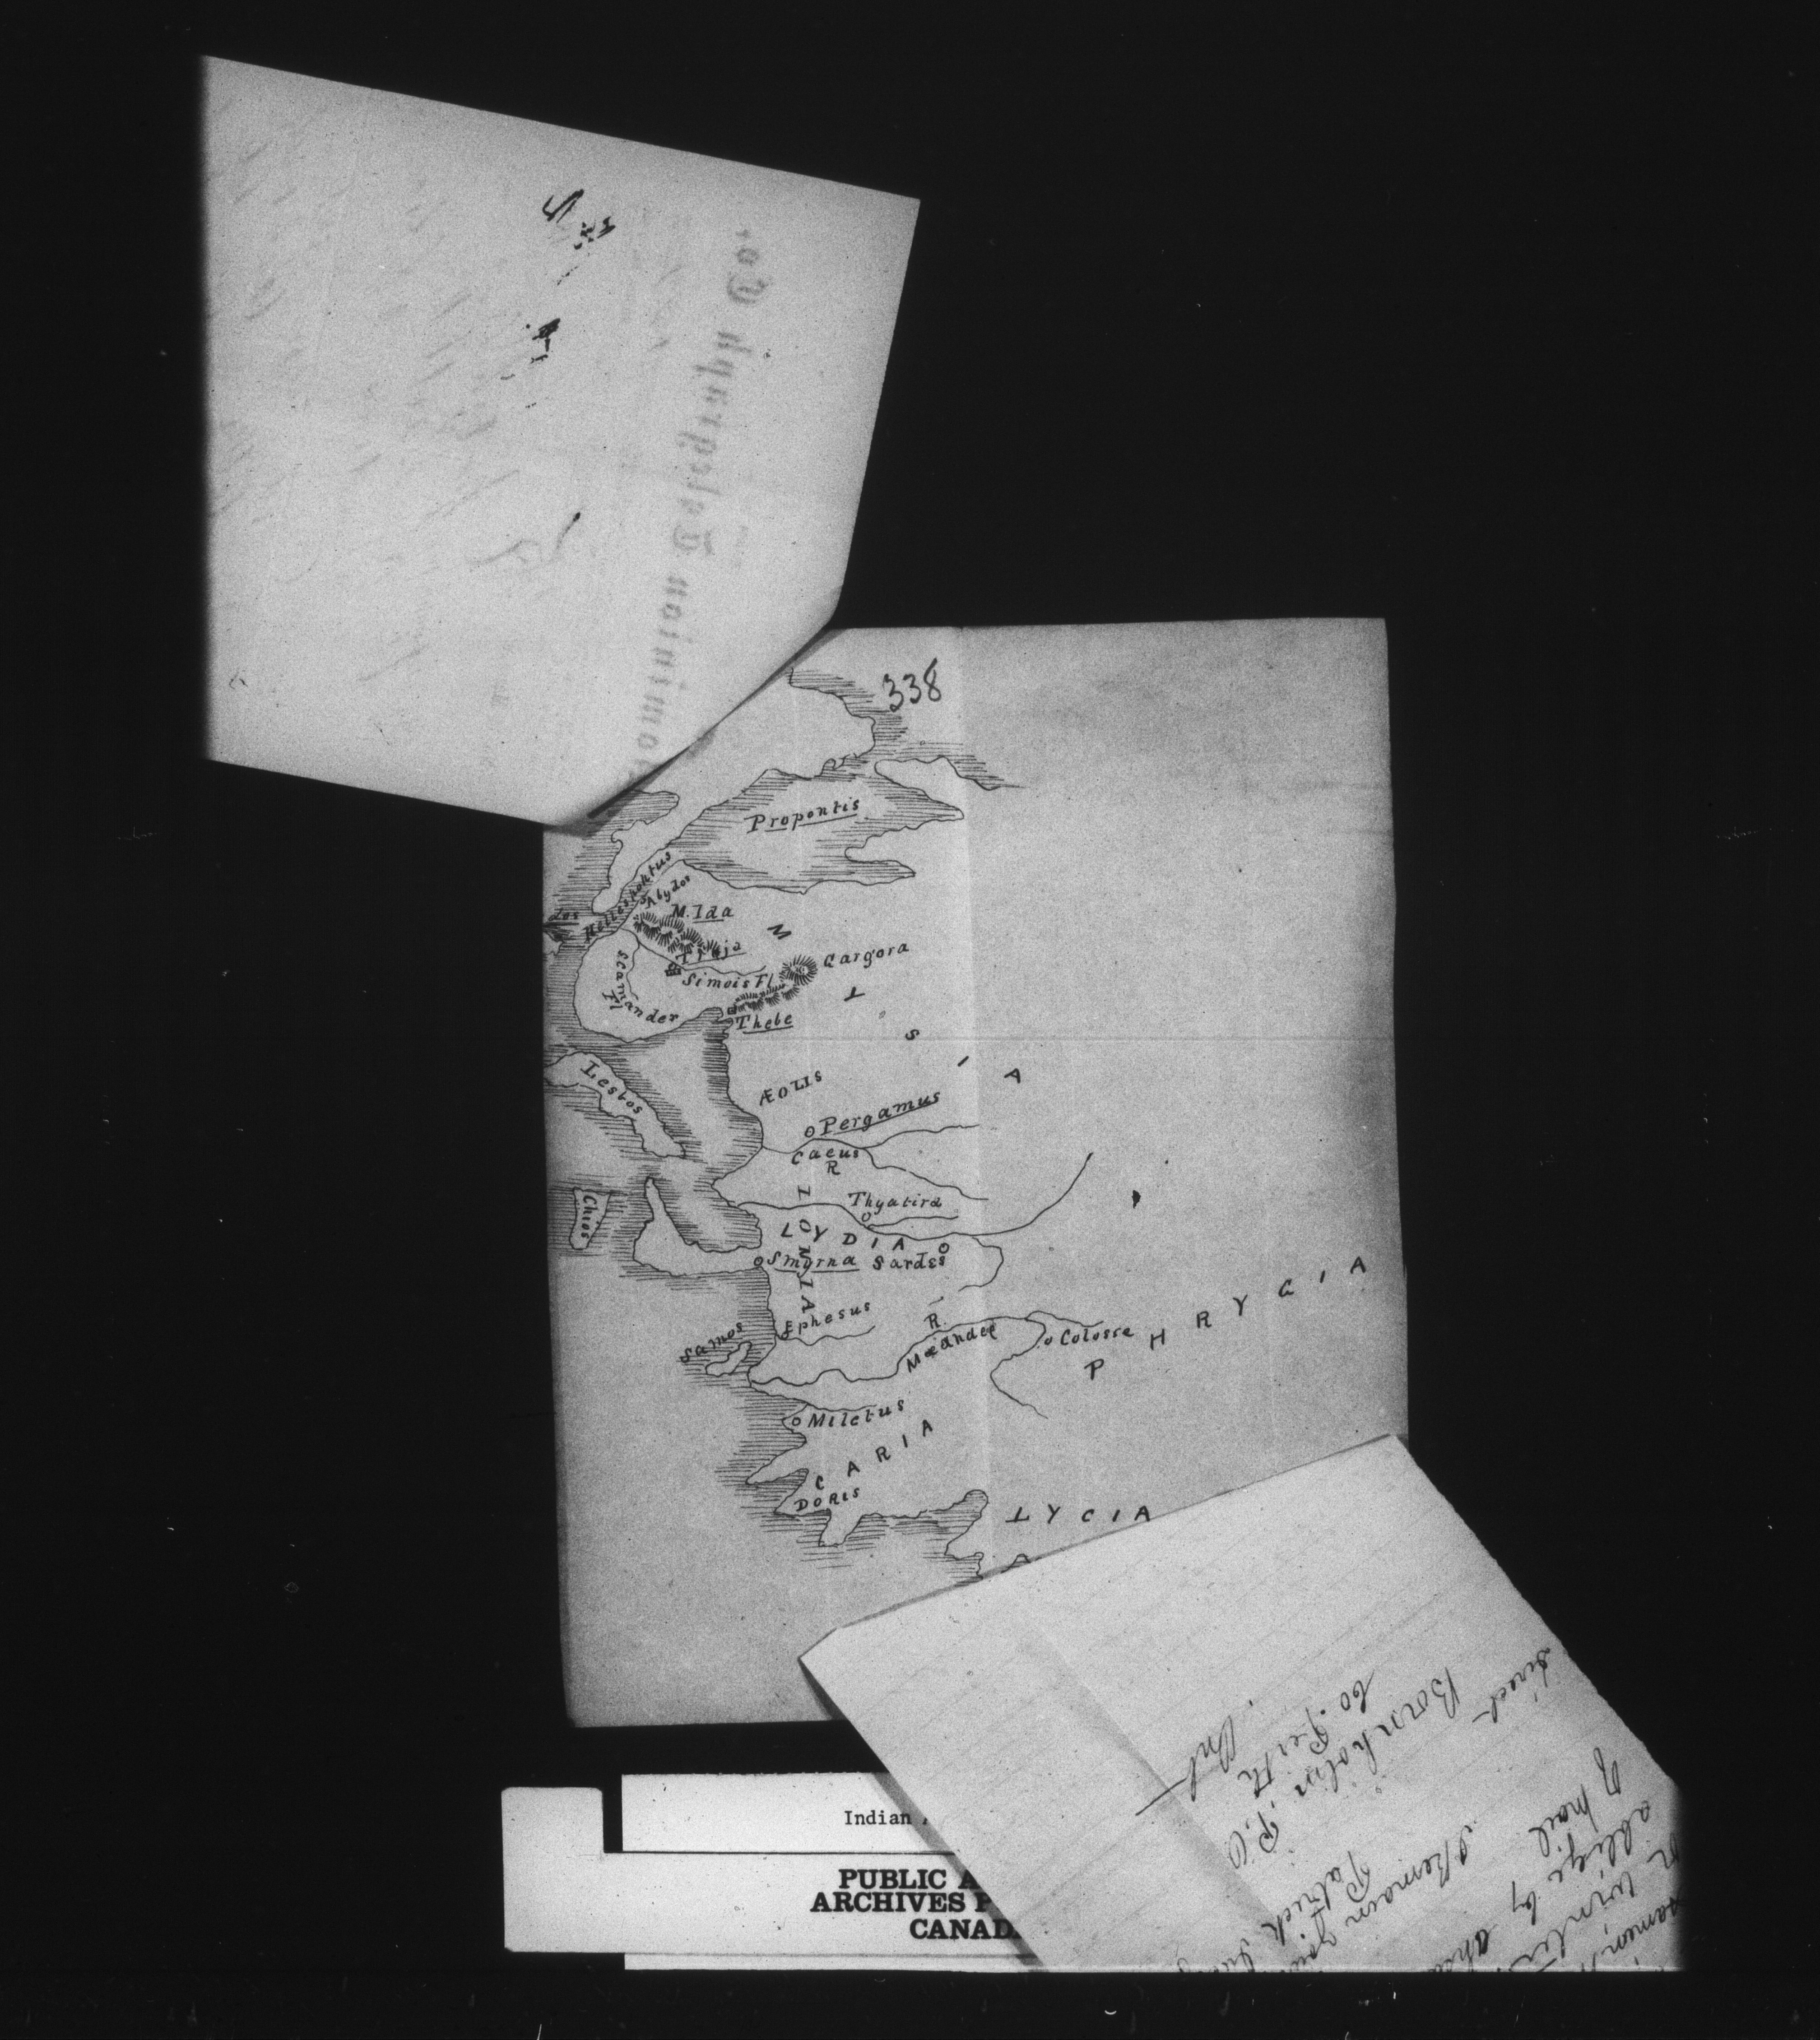 Dominion Telegraph Co.
338
Propontis
Hellespontus
Abydos
M. Ida
dos
Troja
M Y S I A
Gargora
Simois Fl.
Scamander
Fl
Thebe
Lesbos
ÆOLIS
Pergamus
Caeus
R
Chios
Thyatira
I O N I A
L Y D I A
Smyrna
Sardes
Ephesus
Samos
R.
Mæander
Colosse
P H R Y G I A
Miletus
C A R I A
DORIS
L Y C I A
oblige by
of mail
I Remain
Patrick
Bornholm P.O
Co. Perth
Ont
Indian
PUBLIC A
ARCHIVES P
CANAD